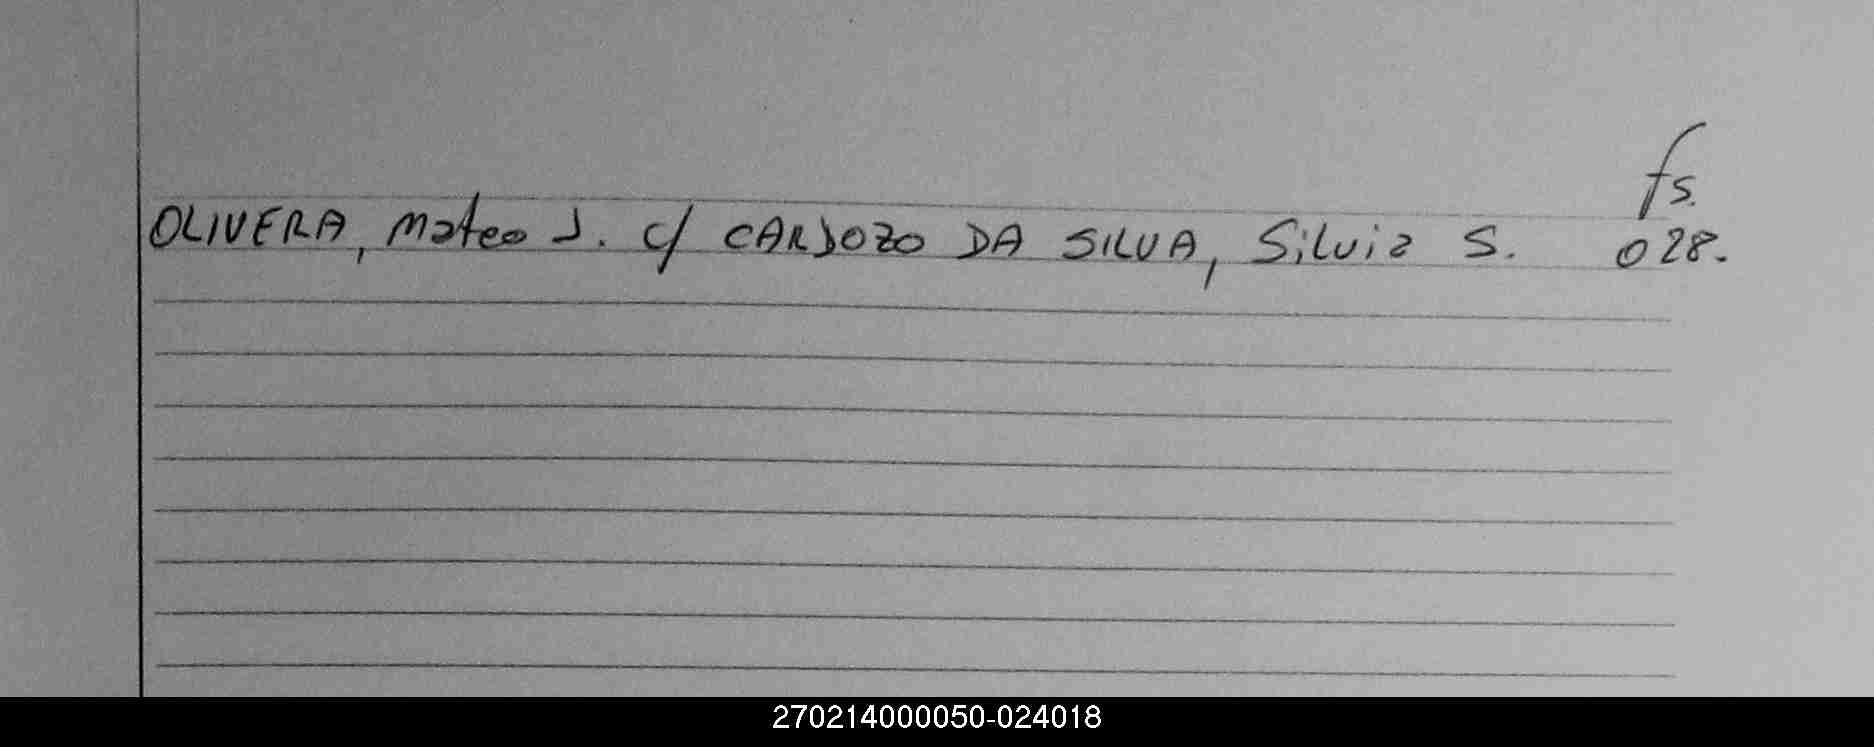 fs.
OLIVERA, Mateo J. c/ CARDOZO DA SILVA, Silvia S. 028.
270214000050-024018